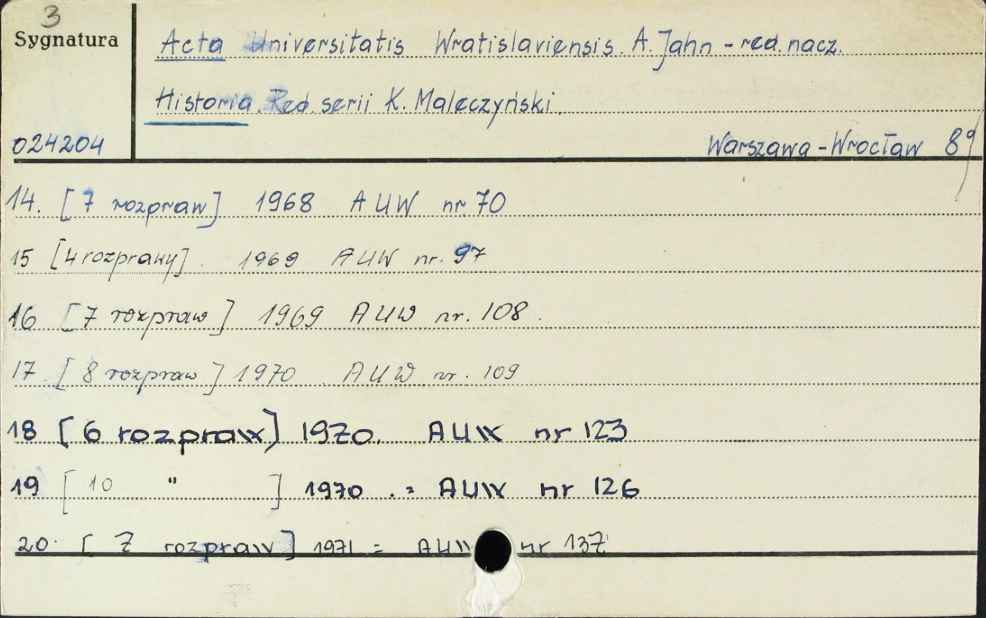 3
Sygnatura
Acta Universitatis Wratislaviensis. A. Jahn - red. nacz.
Historia. Red. serii K. Maleczyński.
024204
Warszawa - Wrocław 89
14. [7 rozpraw] 1968 AUW nr 70
15 [4 rozprawy]. 1969 AUW nr. 97
16 [7 rozpraw] 1969 AUW nr. 108.
17. [8 rozpraw] 1970 AUW nr. 109
18 [6 rozpraw] 1970. AUW nr 123
19 [10 " ] 1970 . = AUW nr 126
20. [7 rozpraw] 1971 = AUW nr 137